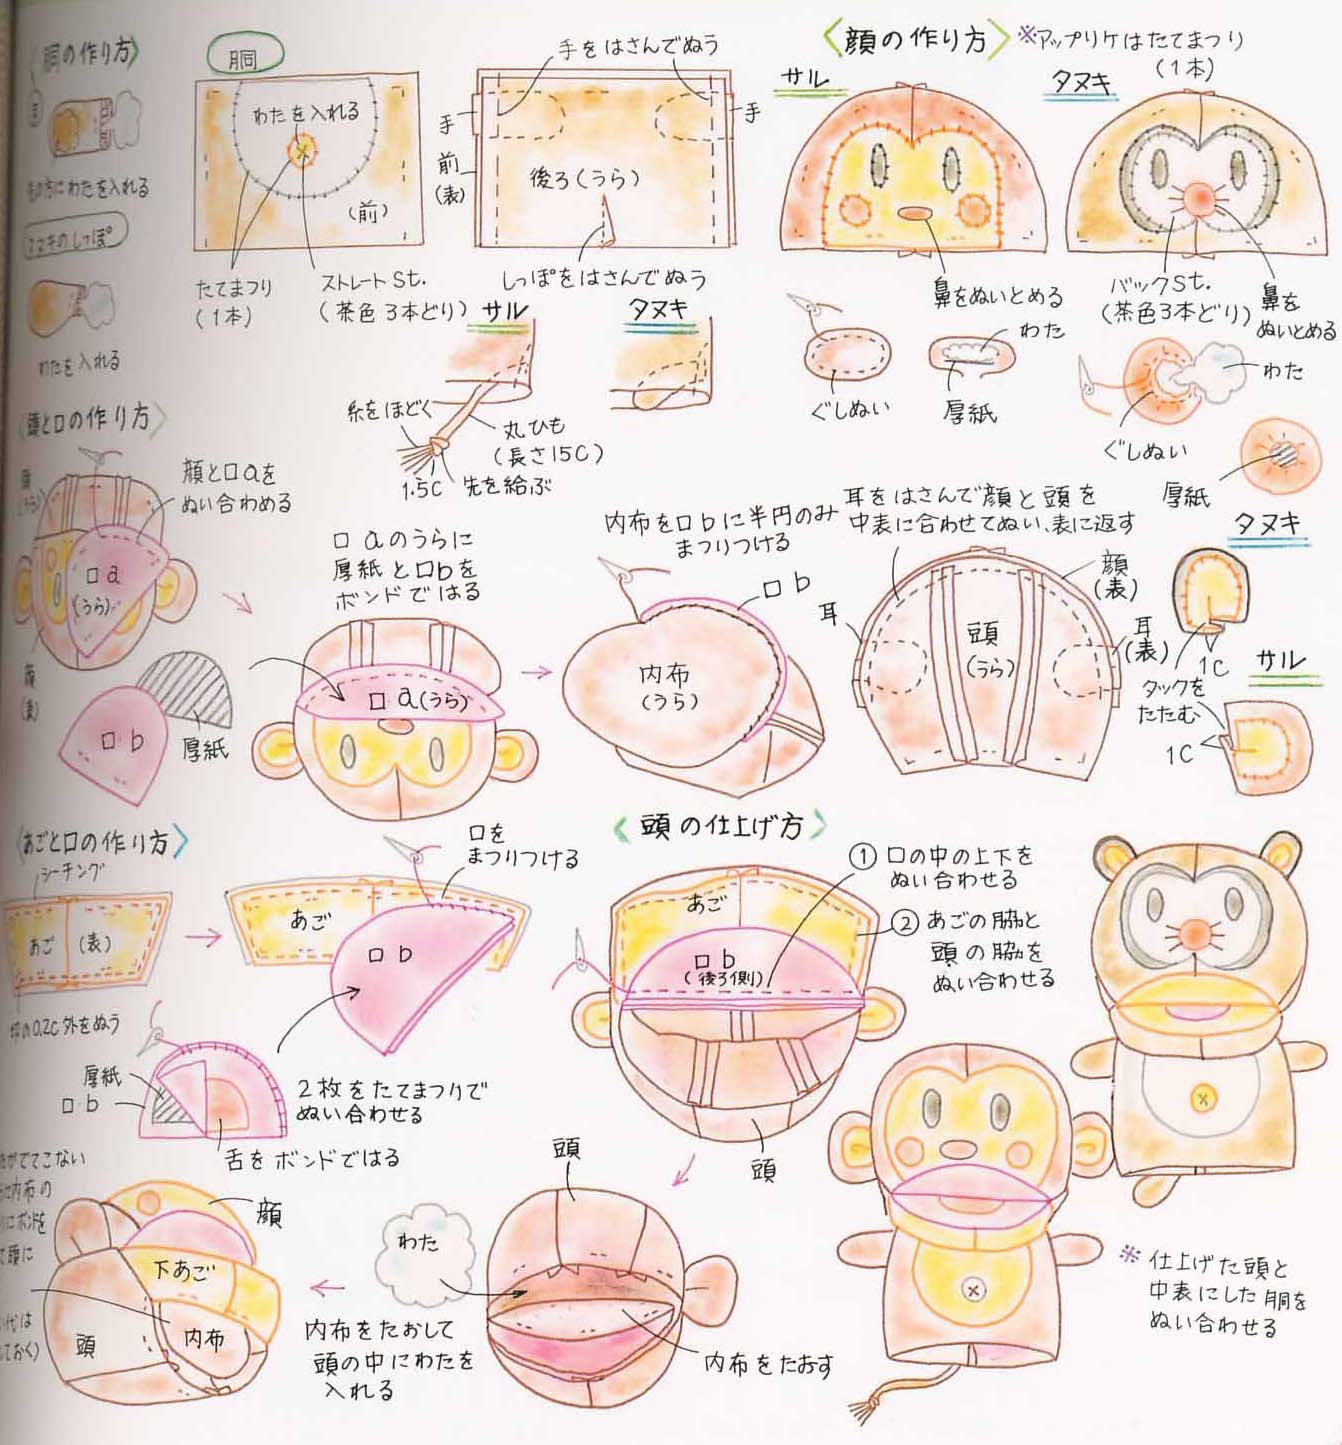 〈胴の作り方〉
手
先の方にわたを入れる
タヌキのしっぽ
わたを入れる
胴
わたを入れる
(前)
たてまつり
(1本)
ストレートSt.
(茶色3本どり)
手をはさんでぬう
手
手
前
(表)
後ろ(うら)
しっぽをはさんでぬう
サル
タヌキ
糸をほどく
丸ひも
(長さ15C)
1.5C
先を結ぶ
〈顔の作り方〉
※アップリケはたてまつり
(1本)
サル
タヌキ
鼻をぬいとめる
わた
ぐしぬい
厚紙
バックSt.
(茶色3本どり)
鼻を
ぬいとめる
わた
ぐしぬい
厚紙
〈頭と口の作り方〉
頭
(うら)
顔と口aを
ぬい合わめる
口a
(うら)
顔
(表)
口・b
厚紙
口aのうらに
厚紙と口bを
ボンドではる
口a(うら)
内布を口bに半円のみ
まつりつける
口b
内布
(うら)
耳をはさんで顔と頭を
中表に合わせてぬい、表に返す
顔
(表)
耳
頭
(うら)
耳
(表)
タヌキ
1C
タックを
たたむ
サル
1C
〈あごと口の作り方〉
シーチング
あご(表)
印の0.2C外をぬう
あご
口を
まつりつける
口b
厚紙
口・b
2枚をたてまつりで
ぬい合わせる
舌をボンドではる
〈頭の仕上げ方〉
あご
口b
(後ろ側)
①口の中の上下を
ぬい合わせる
②あごの脇と
頭の脇を
ぬい合わせる
頭
頭
わた
内布をたおして
頭の中にわたを
入れる
内布をたおす
がでてこない
内布の
にボンドを
頭に
顔
下あご
内布
頭
代は
ておく)
※仕上げた頭と
中表にした胴を
ぬい合わせる